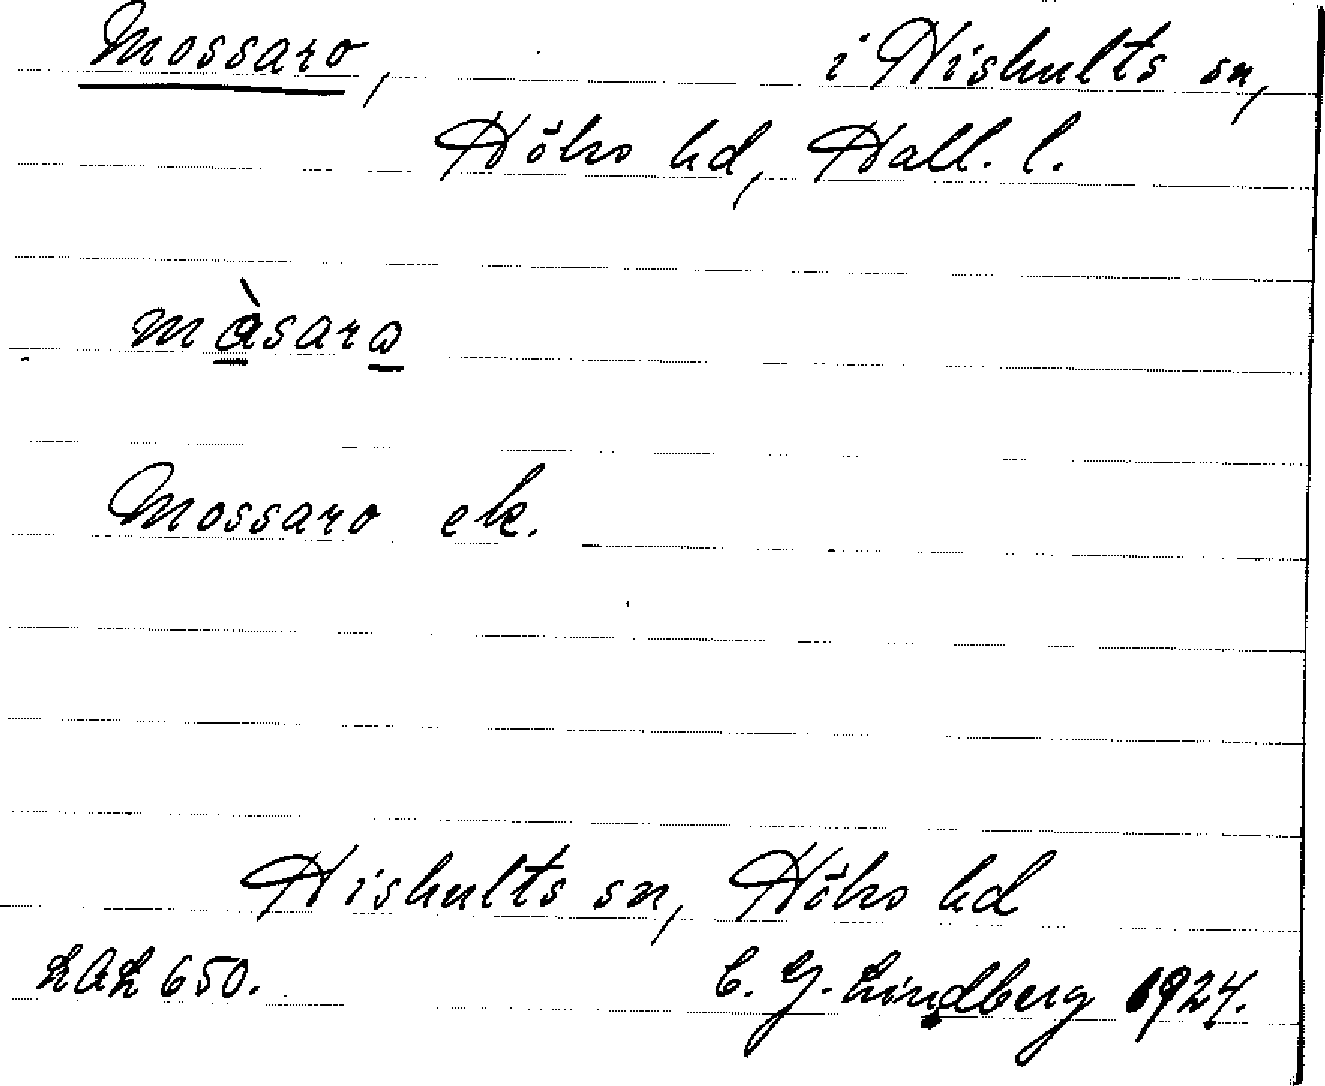 Mossaro, i Hishults sn,
Höks hd, Hall. l.
màsaro
Mossaro ek.
Hishults sn, Höks hd
LAL 650. C. G. Lindberg 1924.